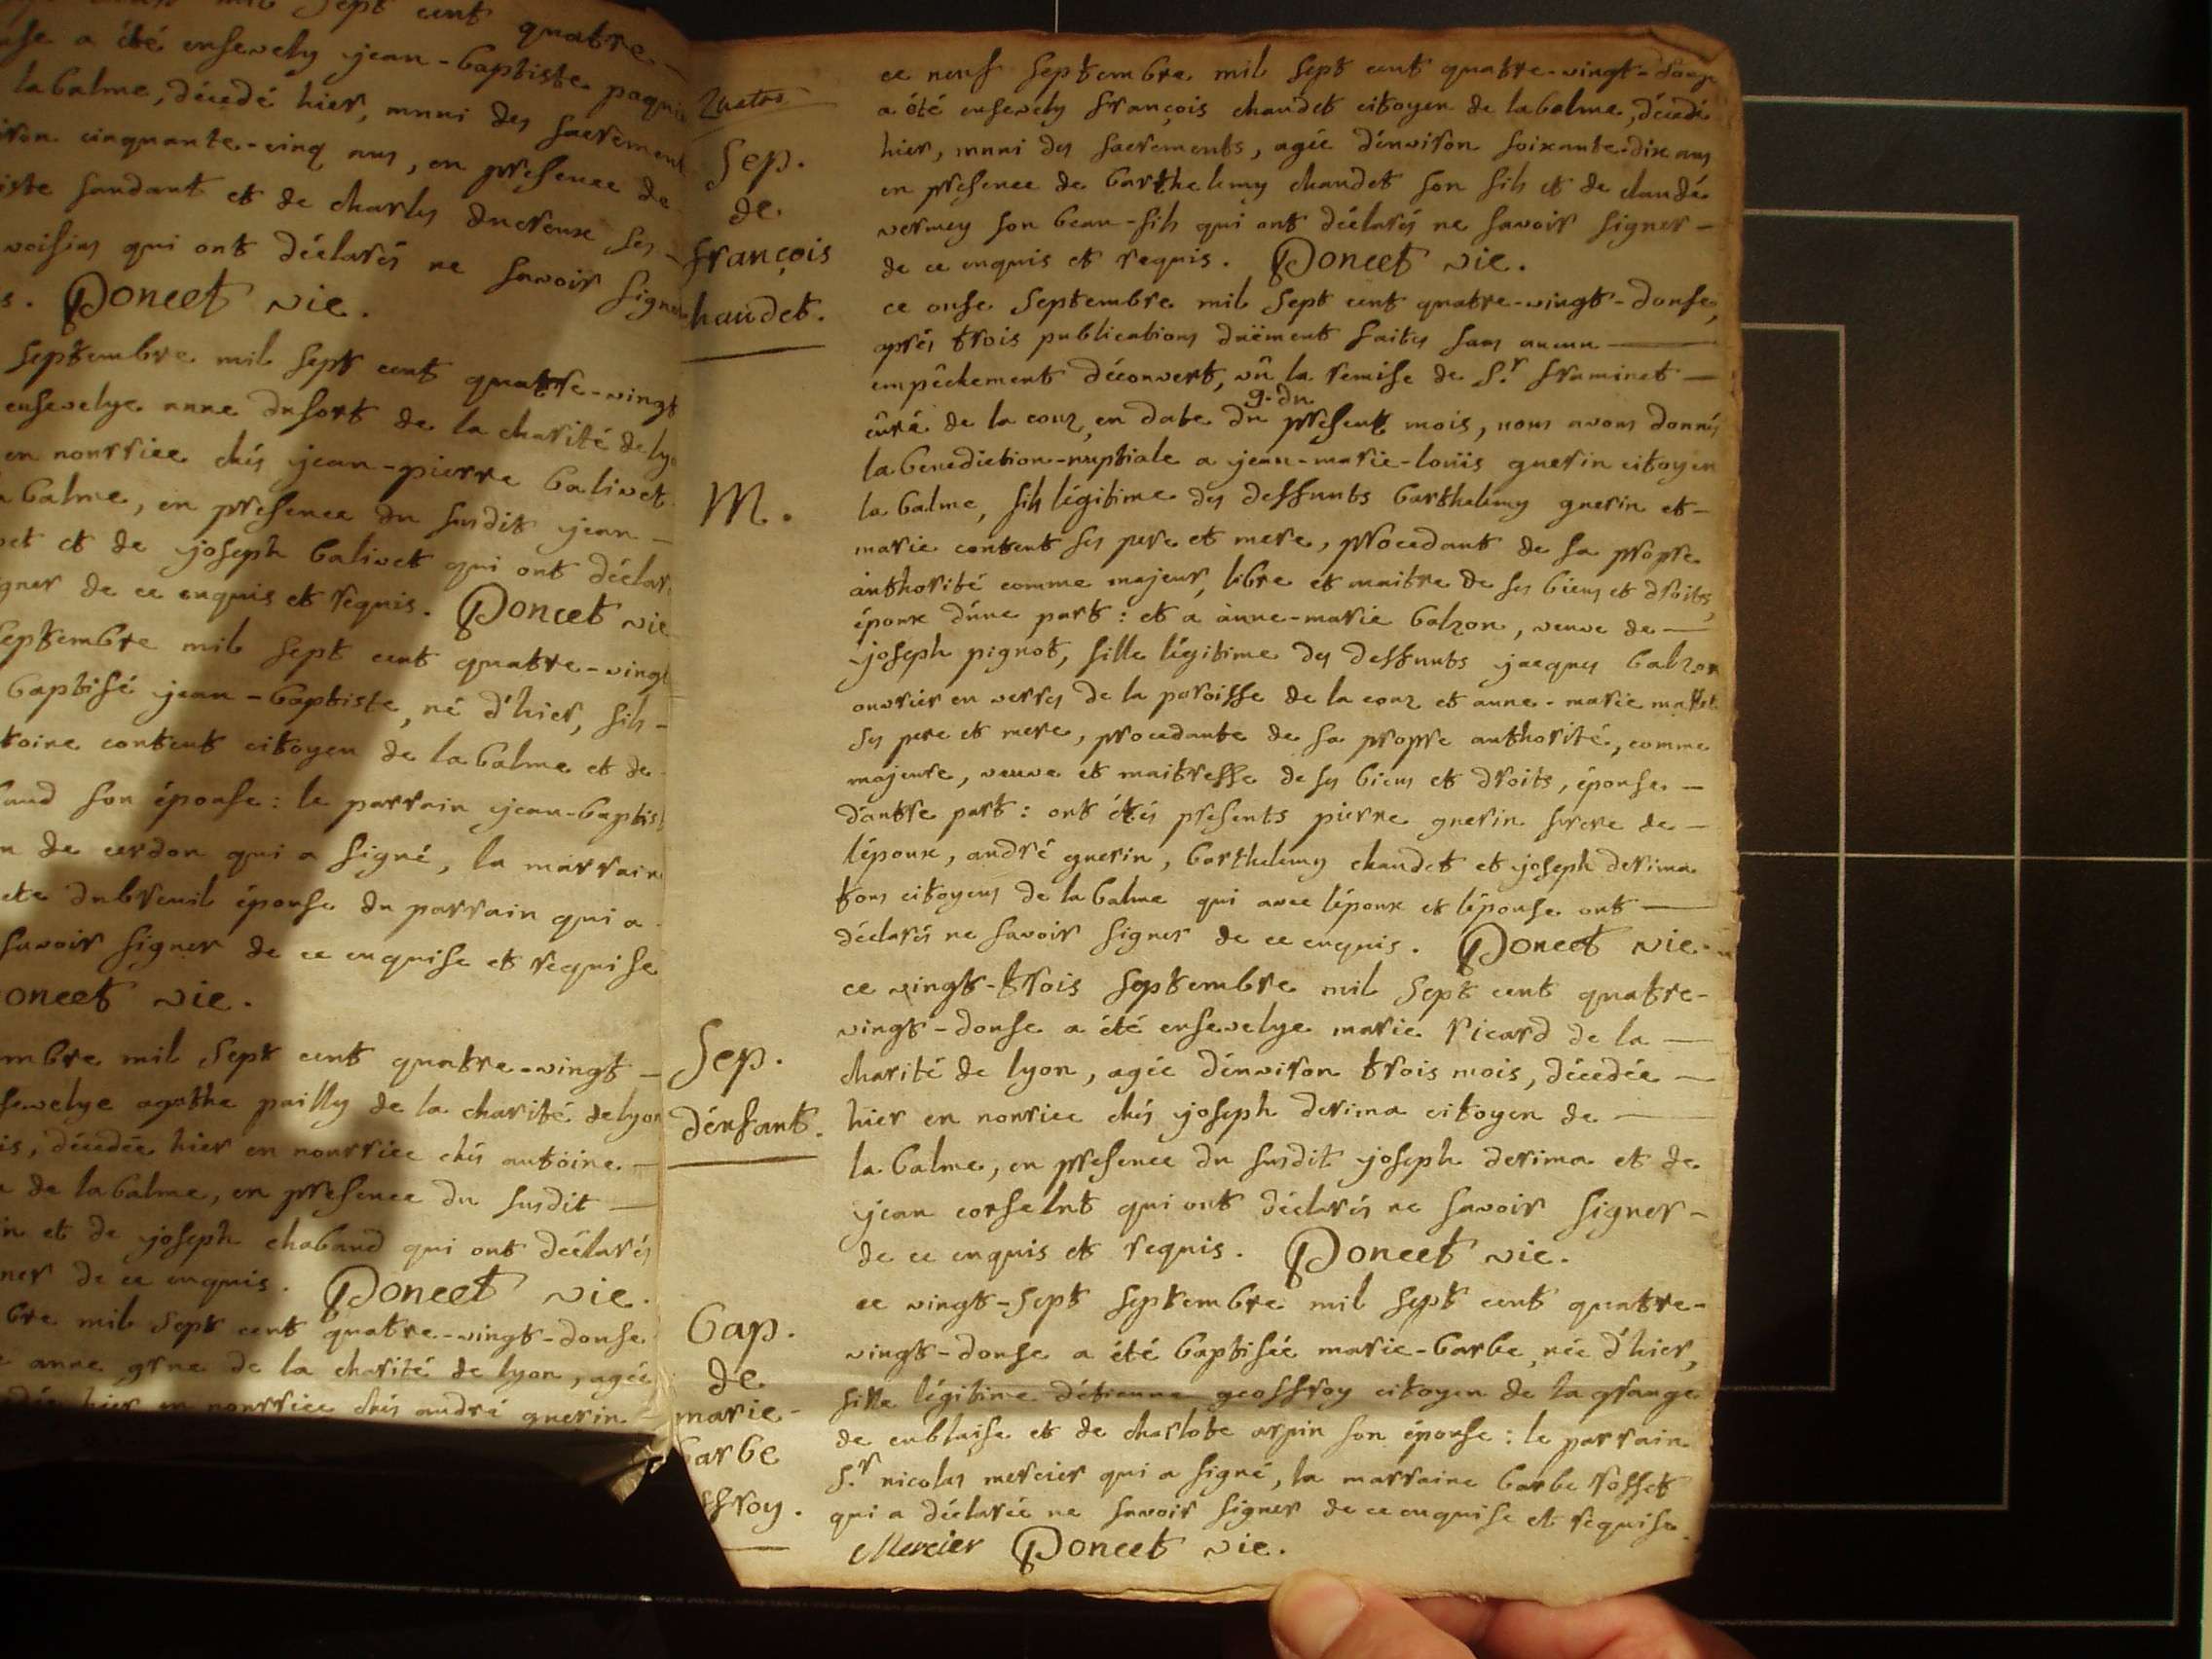 mil sept cent quatre-
a été ensevely jean-baptiste
labalme, décédé hier, muni des sacrement
cinquante-cinq ans, en presence de
iste fandant et de charles ducreux ses
voisins qui ont déclarés ne savoir signer
s. Poncet vic.
septembre mil sept cent quatre-vingt
ensevelye anne dufort de la charité de ly
en nourrice chés jean-pierre balivet
balme, en presence du susdit jean-
et et de joseph balivet qui ont déclar
gner de ce enquis et requis. Poncet vic
septembre mil sept cent quatre-vingt
baptisé jean-baptiste, né d'hier, fils-
toine content citoyen de la balme et de
baud son épouse: le parrain jean-baptist
n de cerdon qui a signé, la marrain
ete dubreuil épouse du parrain qui a
savoir signer de ce enquise et requise
oncet vic.
mbre mil sept cent quatre-vingt-
sevelye agathe pailly de la charité de lyon
is, décédée hier en nourrice chés antoine
de labalme, en presence du susdit
in et de joseph chabaud qui ont déclarés
ner de ce enquis. Poncet vic.
bre mil sept cent quatre-vingt-douse
anne grne de la charité de lyon, agée
hier en nourrice chés andré guerin
Sep.
de
françois
haudet.
ce neuf septembre mil sept cent quatre-vingt-douze
a été ensevely françois chaudet citoyen de labalme, décédé
hier, muni des sacrements, agée d'environ soixante-dix ans
en presence de barthelemy chaudet son fils et de claude
vermey son beau-fils qui ont déclarés ne savoir signer-
de ce enquis et requis. Poncet vic.
M.
ce onse septembre mil sept cent quatre-vingt-douse,
aprés trois publications duëment faites sans aucun
empêchement découvert, vû la remise de S.r framinet
g. du
curé de la couz, en date du present mois, nous avons donnés
la benediction-nuptiale a jean-marie-loüis guerin citoyen
la balme, fils légitime des deffunts barthelemy guerin et-
marie content ses pere et mere, procedant de sa propre
authorité comme majeur, libre et maitre de ses biens et droits,
époux d'une part: et a anne-marie balzon, veuve de
joseph pignot, fille légitime des deffunts jacques balzon
ouvrier en verres de la paroisse de la couz et anne-marie
ses pere et mere, procedante de sa propre authorité, comme
majeure, veuve et maitresse de ses biens et droits, épouse-
d'autre part: ont étés presents pierre guerin frere de-
l'époux, andré guerin, barthelemy chaudet et joseph derima
tous citoyens de la balme qui avec l'époux et l'épouse ont
déclarés ne savoir signer de ce enquis. Poncet vic.
Sep.
d'enfant.
ce vingt-trois septembre mil sept cent quatre-
vingt-douse a été ensevelye marie ricard de la
charité de lyon, agée d'environ trois mois, décédée
hier en nourice chés joseph derima citoyen de
la balme, en presence du susdit joseph derima et de
jean corselut qui ont déclarés ne savoir signer-
de ce enquis et requis. Poncet vic.
bap.
de
marie-
barbe
ffroy.
ce vingt-sept septembre mil sept cent quatre-
vingt-douse a été baptisée marie-barbe, née d'hier,
fille légitime d'étienne geoffroy citoyen de la grange
de cublaise et de charlote arpin son épouse: le parrain
S.r nicolas mercier qui a signé, la marraine barbe rosset
qui a déclarée ne savoir signer de ce enquise et requise.
Mercier Poncet vic.